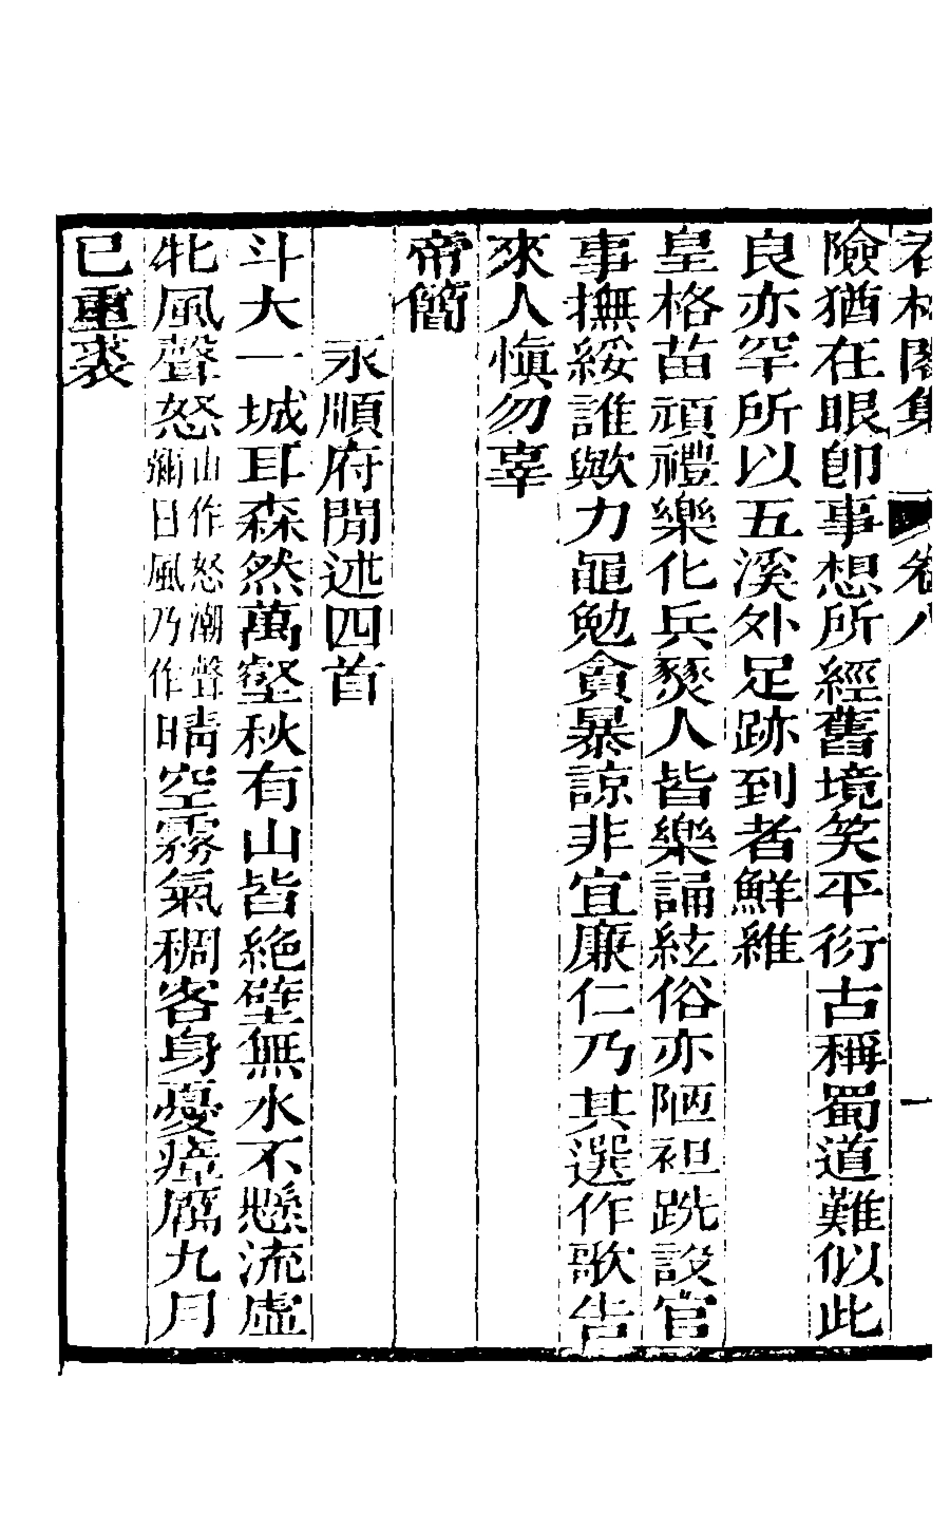 香材閣集 卷八 一
險猶在眼卽事想所經舊境笑平衍古稱蜀道難似此
良亦罕所以五溪外足跡到者鮮維
皇格苗頑禮樂化兵燹人皆樂誦絃俗亦陋袒跣設官
事撫綏誰歟力黽勉貪暴諒非宜廉仁乃其選作歌告
來人愼勿辜
帝簡
永順府閒述四首
斗大一城耳森然萬壑秋有山皆絶壁無水不懸流虛
牝風聲怒山作怒潮聲彌日風乃作晴空霧氣稠客身憂瘴厲九月
已重裘